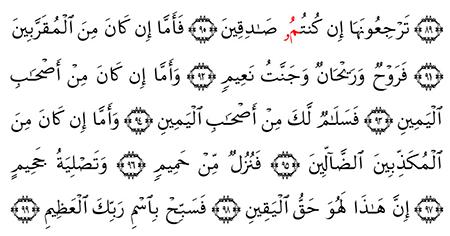 ﴿٨٩﴾ تَرْجِعُونَهَا إِن كُنتُمُۥ صَـٰدِقِينَ ﴿٩٠﴾ فَأَمَّا إِن كَانَ مِنَ ٱلْمُقَرَّبِينَ
﴿٩١﴾ فَرَوْحٌ وَرَيْحَانٌ وَجَنَّتُ نَعِيمٍ ﴿٩٢﴾ وَأَمَّا إِن كَانَ مِنْ أَصْحَـٰبِ
ٱلْيَمِينِ ﴿٩٣﴾ فَسَلَـٰمٌ لَّكَ مِنْ أَصْحَـٰبِ ٱلْيَمِينِ ﴿٩٤﴾ وَأَمَّا إِن كَانَ مِنَ
ٱلْمُكَذِّبِينَ ٱلضَّآلِّينَ ﴿٩٥﴾ فَنُزُلٌ مِّنْ حَمِيمٍ ﴿٩٦﴾ وَتَصْلِيَةُ جَحِيمٍ
﴿٩٧﴾ إِنَّ هَـٰذَا لَهُوَ حَقُّ ٱلْيَقِينِ ﴿٩٨﴾ فَسَبِّحْ بِٱسْمِ رَبِّكَ ٱلْعَظِيمِ ﴿٩٩﴾